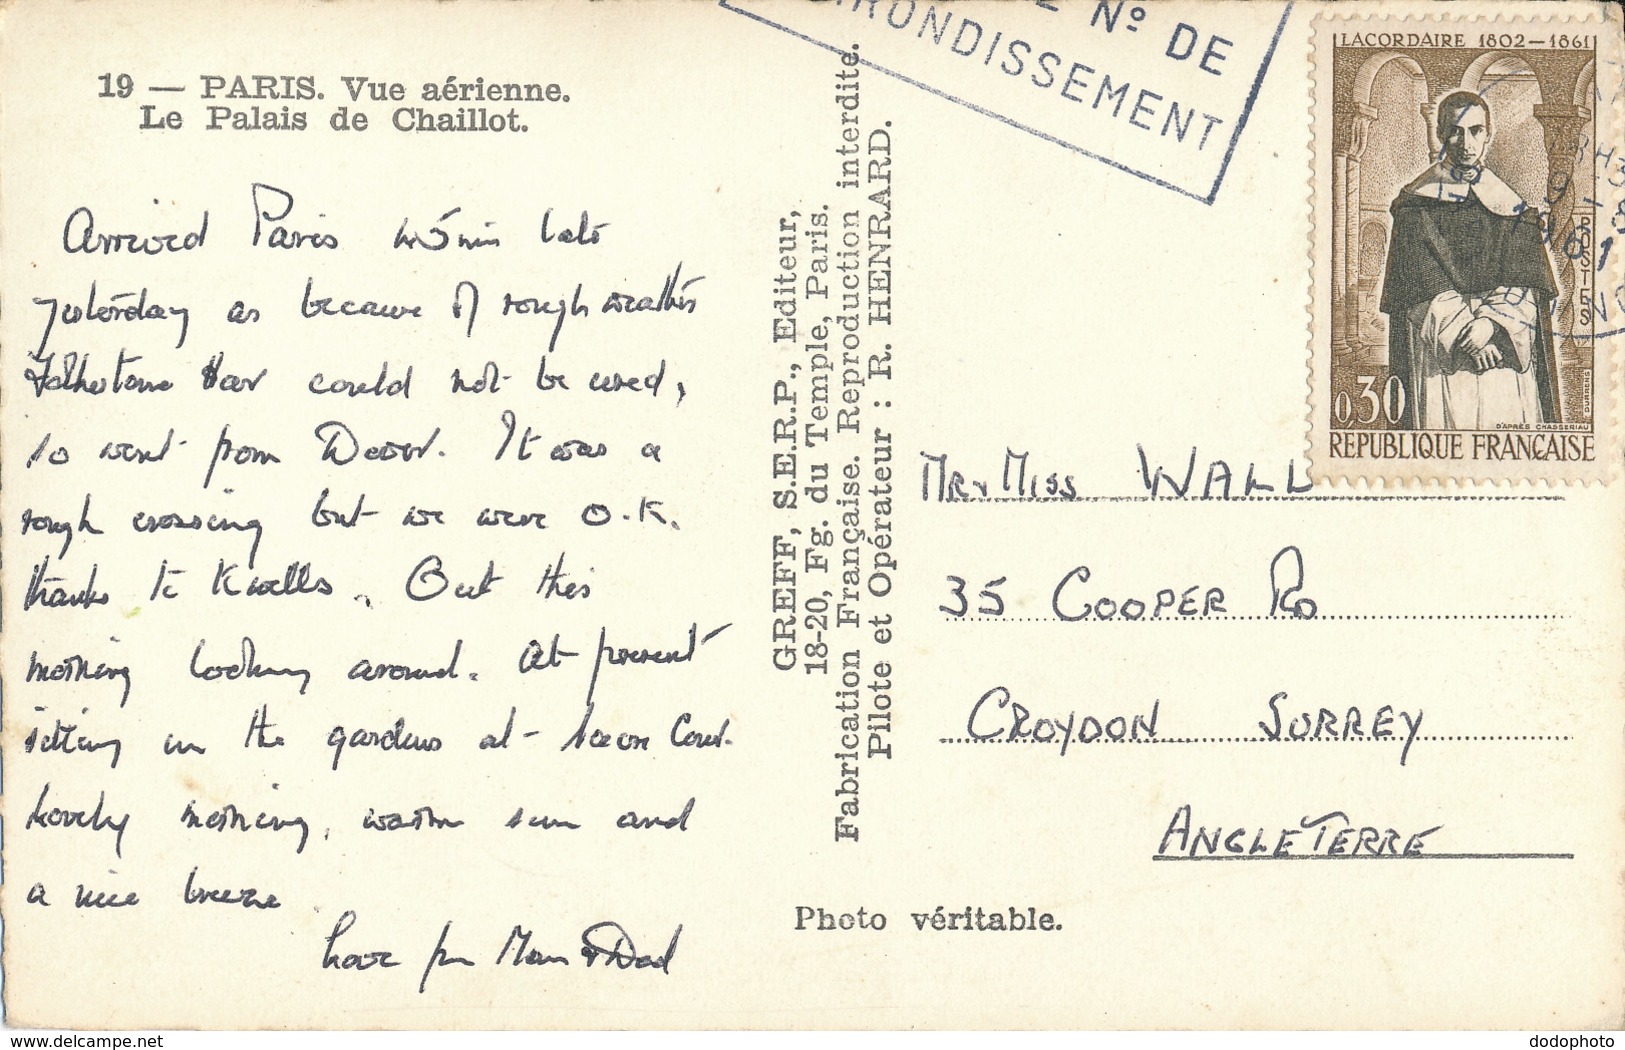 19 — PARIS. Vue aérienne.
Le Palais de Chaillot.
Arrived Paris 45 min late
yesterday as because of rough weather
Folkestone Har could not be used,
so went from Dover. It was a
rough crossing but we were O.K.
thanks to Kwells. Out this
morning looking around. At present
sitting in the gardens at
Lovely morning, warm sun and
a nice breeze
Love from Mum & Dad
GREFF, S.E.R.P., Editeur,
18-20, Fg. du Temple, Paris.
Fabrication Française. Reproduction interdite.
Pilote et Opérateur : R. HENRARD.
Photo véritable.
Nº DE
RONDISSEMENT
LACORDAIRE 1802-1861
POSTES
0,30
DURRENS
D'APRÈS CHASSERIAU
REPUBLIQUE FRANÇAISE
9 - 8
1961
MR & MISS WALL
35 COOPER RD
CROYDON SURREY
ANGLETERRE
www.delcampe.net
dodophoto